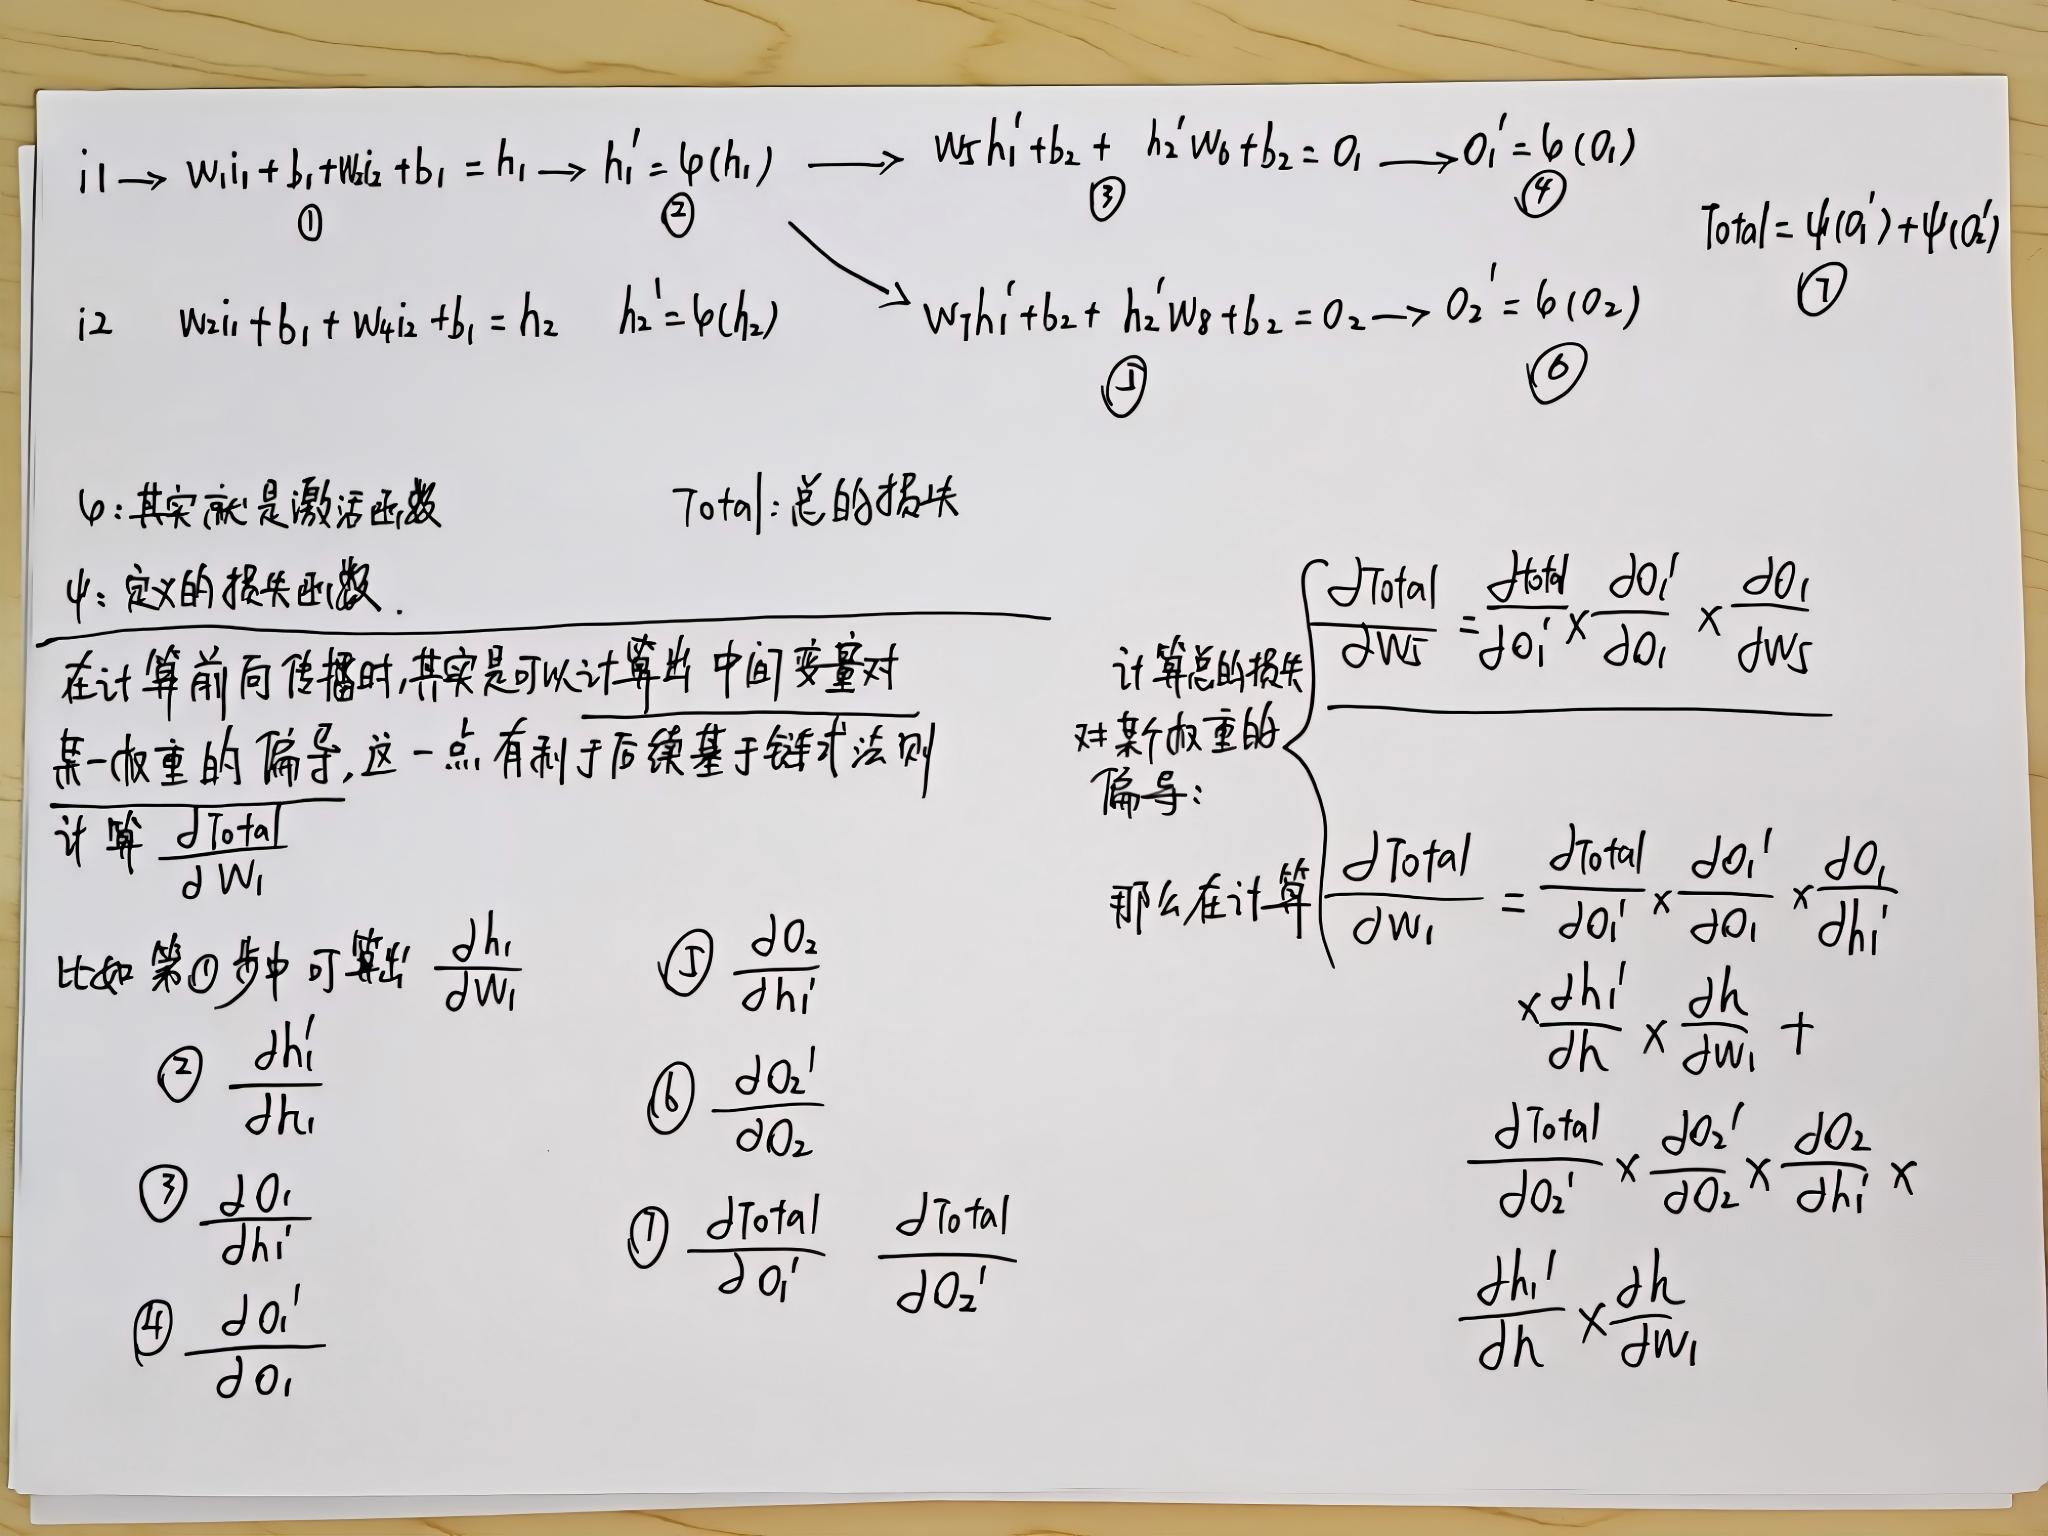 i1 → w₁i₁ + b₁ + w₂i₂ + b₁ = h₁ → h₁' = φ(h₁) → w₅h₁' + b₂ + h₂'w₆ + b₂ = O₁ → O₁' = φ(O₁)
① ② ③ ④
Total = ψ(O₁') + ψ(O₂')
⑦
i2 w₂i₁ + b₁ + w₄i₂ + b₁ = h₂ h₂' = φ(h₂) w₇h₁' + b₂ + h₂'w₈ + b₂ = O₂ → O₂' = φ(O₂)
⑤ ⑥
φ:其实就是激活函数 Total:总的损失
ψ:定义的损失函数.
在计算前向传播时,其实是可以计算出中间变量对
某一权重的偏导,这一点有利于后续基于链式法则
计算 dTotal/dW₁
比如第①步中可算出 dh₁/dW₁
② dh₁'/dh₁
③ dO₁/dh₁'
④ dO₁'/dO₁
⑤ dO₂/dh₁'
⑥ dO₂'/dO₂
⑦ dTotal/dO₁' dTotal/dO₂'
计算总的损失
对某个权重的
偏导:
dTotal/dW₅ = dtotal/dO₁' × dO₁'/dO₁ × dO₁/dW₅
那么在计算 dTotal/dW₁ = dTotal/dO₁' × dO₁'/dO₁ × dO₁/dh₁'
× dh₁'/dh × dh/dW₁ +
dTotal/dO₂' × dO₂'/dO₂ × dO₂/dh₁' ×
dh₁'/dh × dh/dW₁